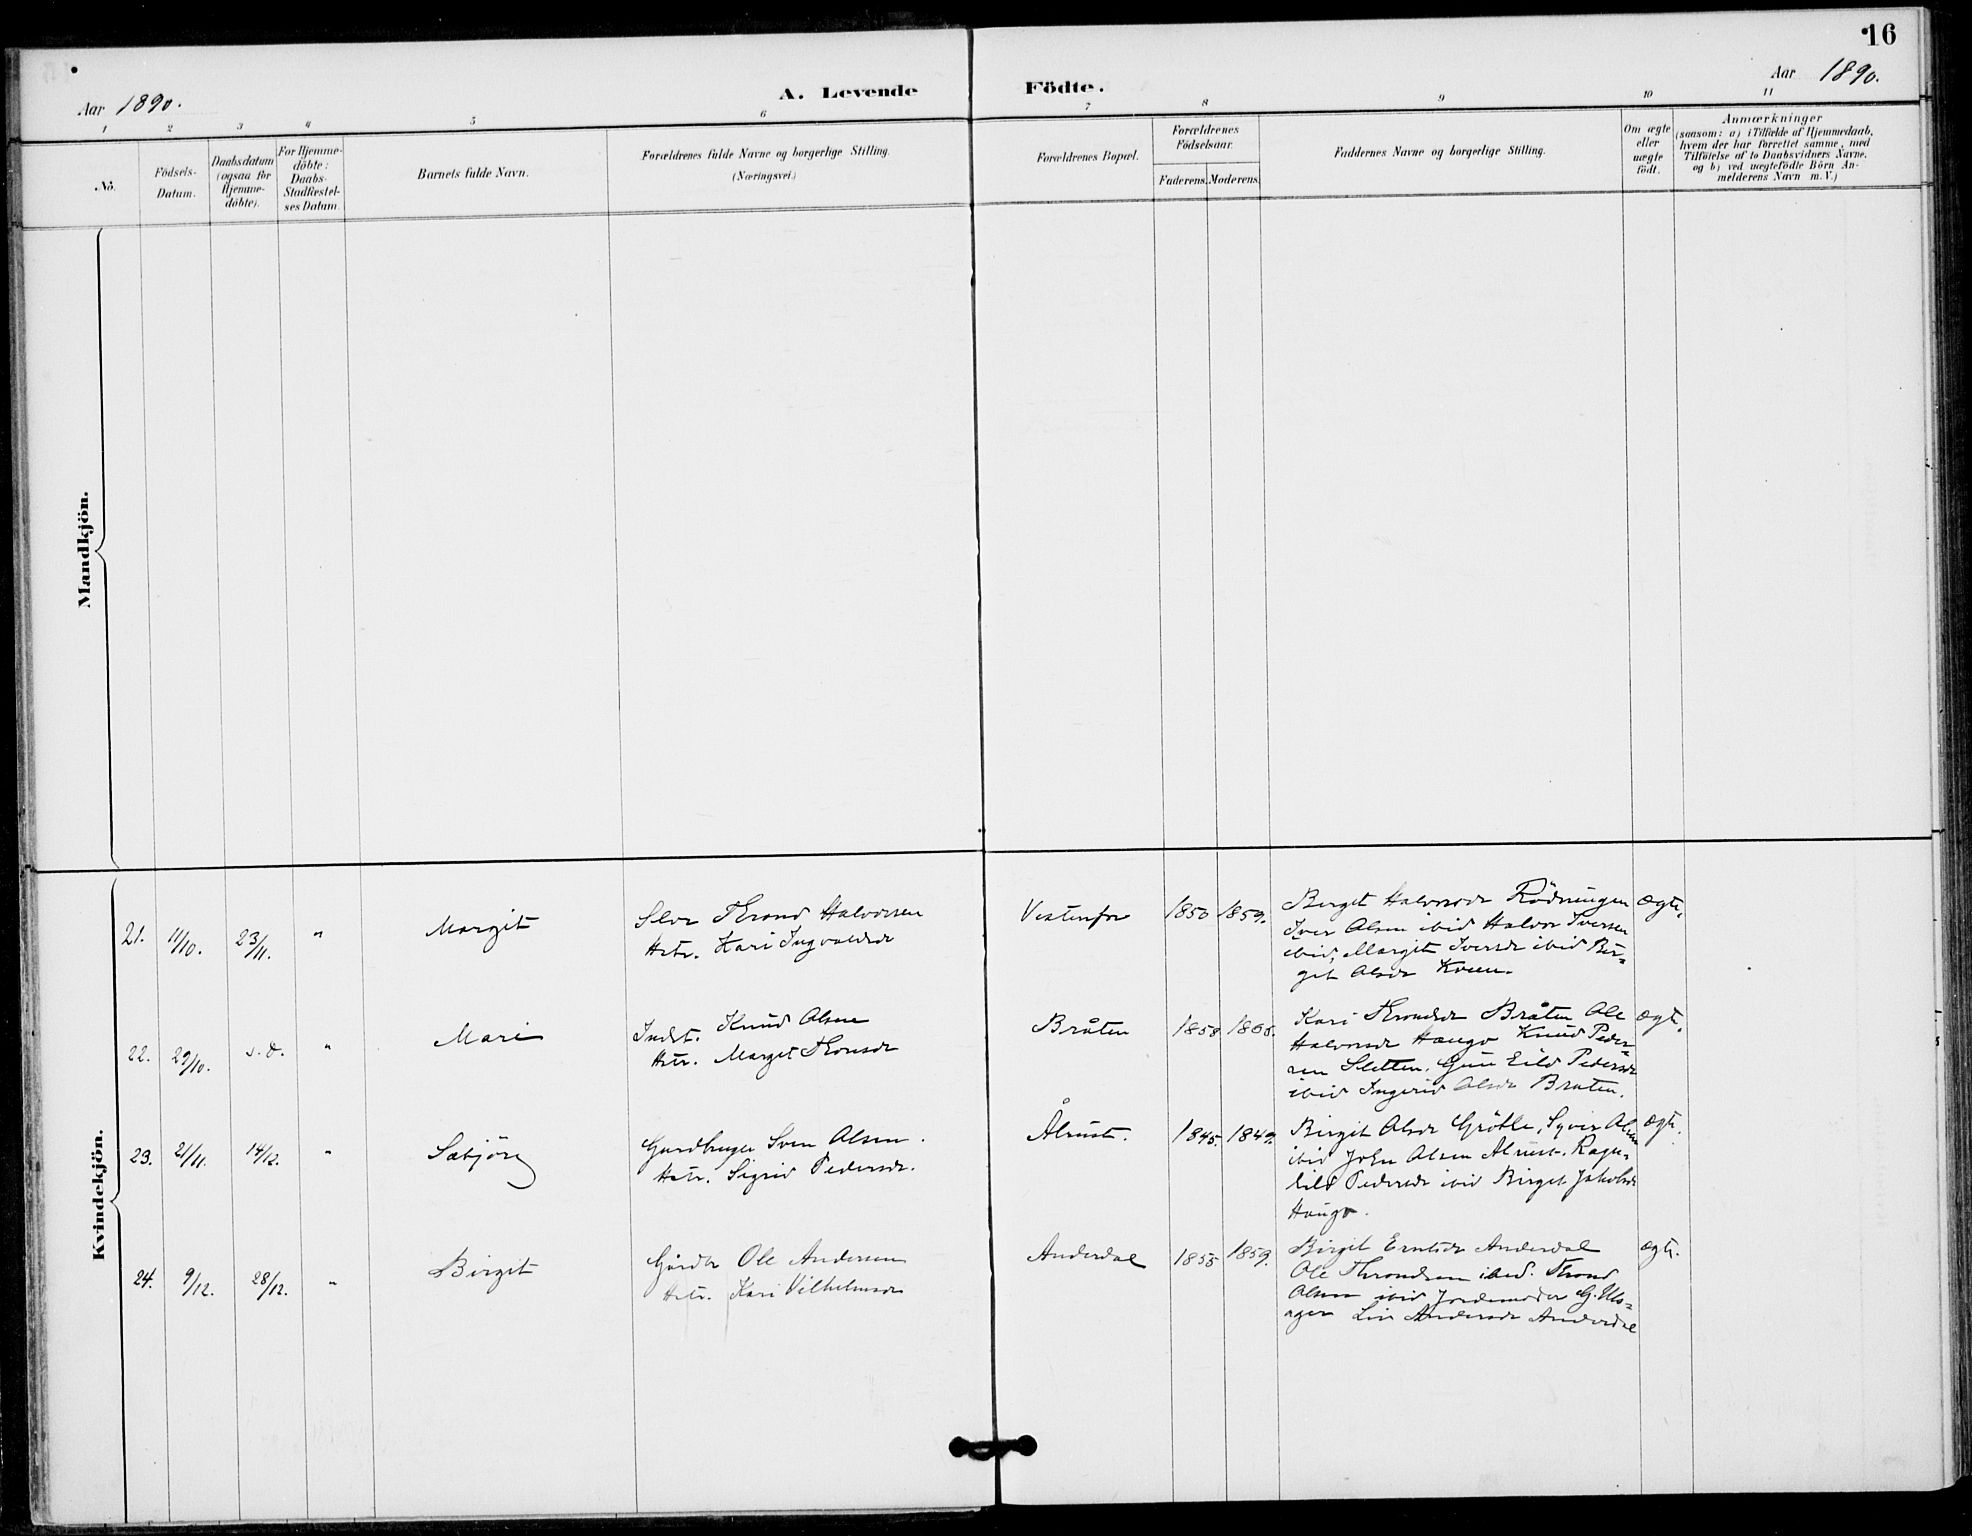 16
Aar 1890.
A. Levende Födte.
Aar 1890.
1 2 3 4 5 6 7 8 9 10 11
No.
Födsels-
Datum.
Daabsdatum
(ogsaa for
Hjemme-
döbte).
For Hjemme-
döbte:
Daabs-
Stadfæstel-
ses Datum.
Barnets fulde Navn.
Forældrenes fulde Navne og borgerlige Stilling.
(Næringsvei.)
Forældrenes Bopæl.
Forældrenes
Födselsaar.
Faderens. Moderens.
Faddernes Navne og borgerlige Stilling.
Om ægte
eller
uægte
födt.
Anmærkninger
(saasom: a) i Tilfælde af Hjemmedaab,
hvem der har forrettet samme, med
Tilföielse af to Daabsvidners Navne,
og b) ved uægtefödte Börn An-
melderens Navn m. V.)
Mandkjön.
Kvindekjön.
21. 11/10. 23/11. " Margit
Selvr Thrond Halvorsen
Hstr. Kari Ingvaldsdr
Vestenfor 1850 1859.
Birgit Halvorsdr Rödningen
Iver Olsen ibid Halvor Iversen
ibid, Margit Iversdr ibid Bir-
git Olsdr Kveen.
ægte.
22. 29/10. s. d. " Mari
Indst. Knud Olsen
Hstr. Marget Thronsdr
Bråten 1858 1865.
Kari Throndsdr Bråten Ole
Halvorsdr Haugo Knud Peder-
sen Sletten. Gunhild Pedersdr
ibid Ingerid Olsdr Braten.
ægte.
23. 21/11. 14/12. " Sæbjörg
Gardbruger Sven Olsen.
Hstr. Sigrid Pedersdr.
Ålrust. 1845. 1849.
Birgit Olsdr Gröthe, Syver Olsen
ibid John Olsen Ålrust. Ragn-
hild Pedersdr ibid Birget Jakobsdr
Haugo.
ægte.
24. 9/12. 28/12. " Birgit
Gårdbr Ole Andersen
Hstr. Kari Vilhelmsdr
Anderdal 1855 1859.
Birgit Anderdal
Ole Throndsen ibid. Thrond
Olsen ibid Jordemoder G. Uls-
ager Liv Andersdr Anderdal
ægte.